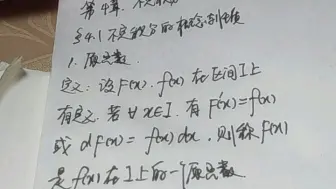 第4章 不定积分
§4.1 不定积分的概念与性质
1. 原函数
定义: 设F(x), f(x) 在区间I上
有定义, 若∀x∈I, 有F'(x)=f(x)
或 dF(x)=f(x)dx, 则称F(x)
是f(x)在I上的一个原函数